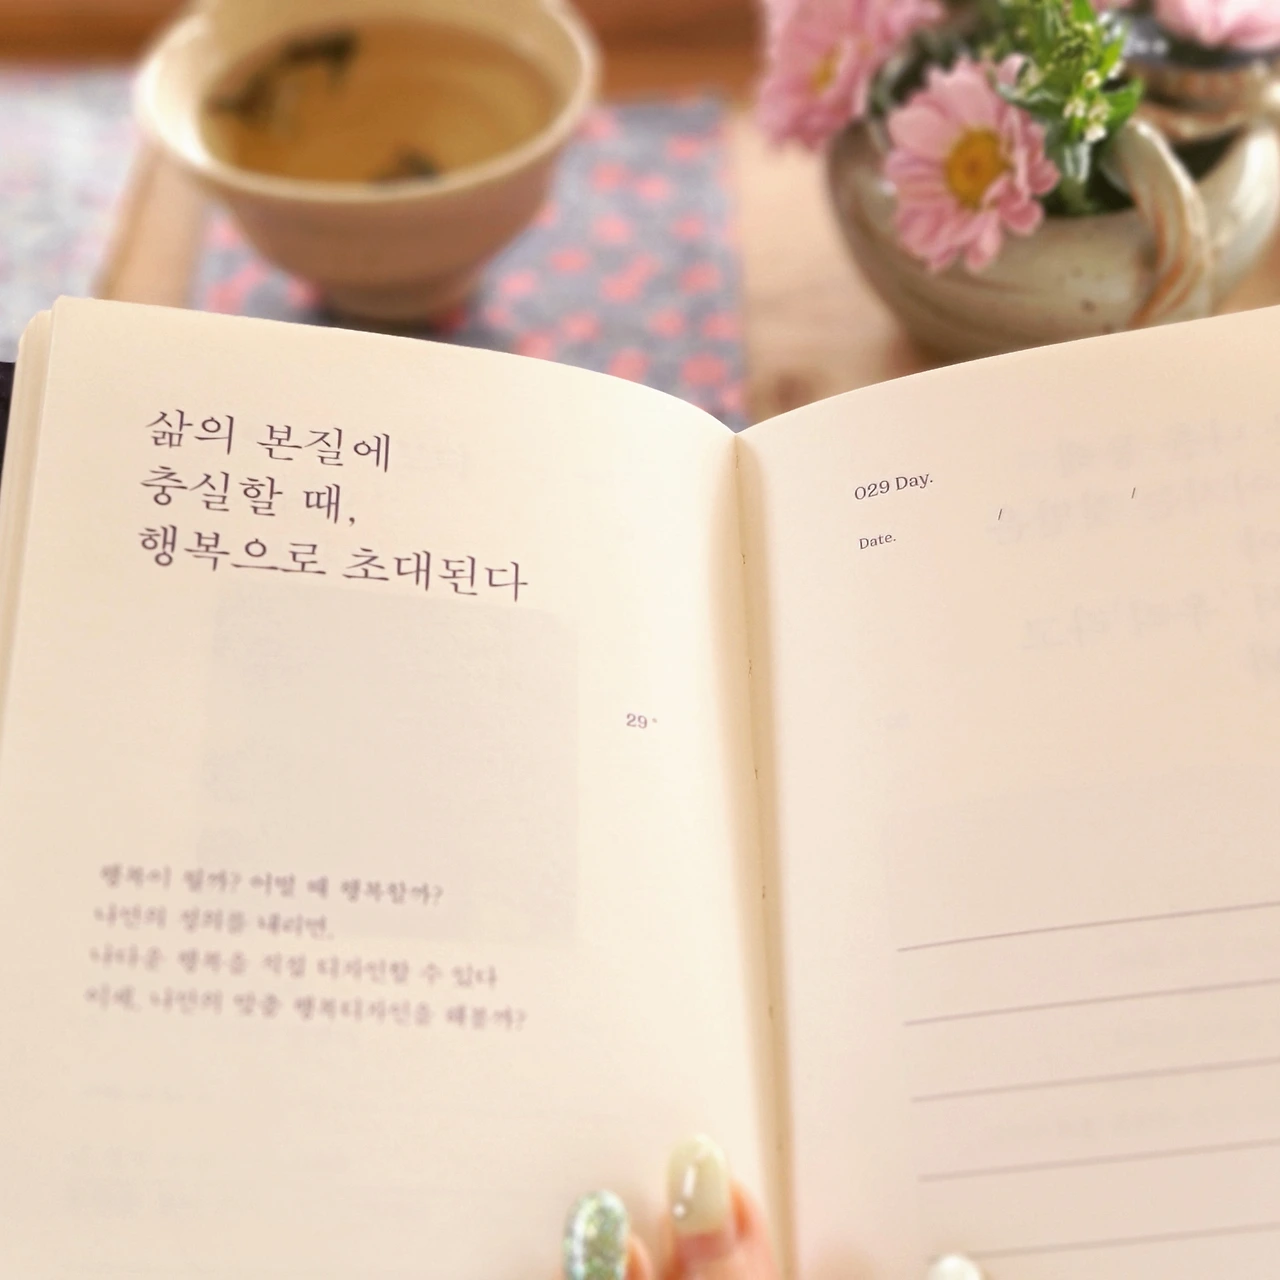 삶의 본질에
충실할 때,
행복으로 초대된다
29°
행복이 뭘까? 어떨 때 행복할까?
나만의 정의를 내리면,
나다운 행복을 직접 디자인할 수 있다
이제, 나만의 맞춤 행복디자인을 해볼까?
029 Day.
Date. / /